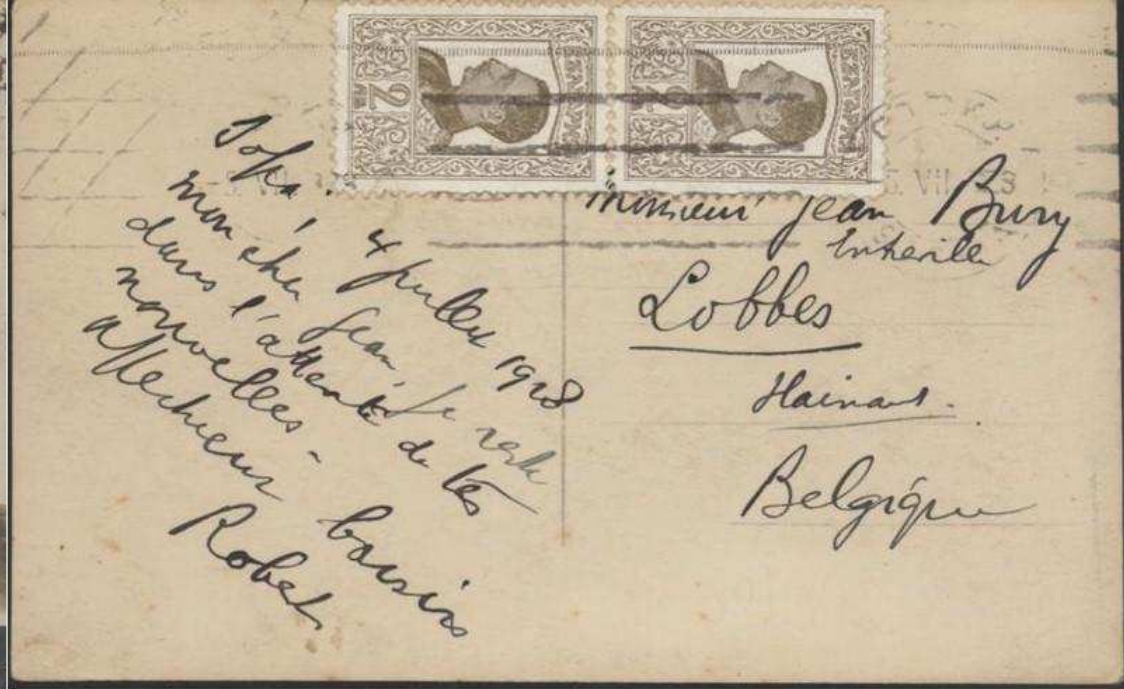 Sofia,
4 juillet 1928
mon cher Jean, Je reste
dans l'attente de tes
nouvelles -
affectueux baisers
Robert
Monsieur Jean Bury
Entreville
Lobbes
Hainaut.
Belgique
2
2
VII